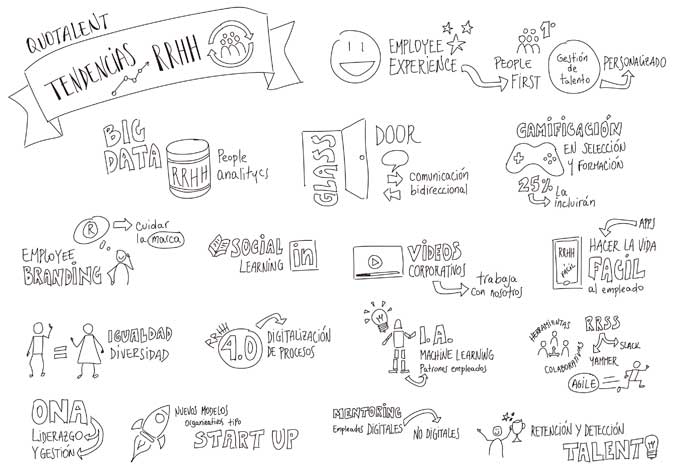 QUOTALENT
TENDENCIAS RRHH
EMPLOYEE
EXPERIENCE
PEOPLE
FIRST
1º
Gestión
de
talento
PERSONALIZADO
BIG
DATA
RRHH
People
analitycs
GLASS
DOOR
comunicación
bidireccional
GAMIFICACIÓN
EN SELECCIÓN
Y FORMACIÓN
25% La
incluirán
EMPLOYEE
BRANDING
R
Cuidar
la marca
SOCIAL
LEARNING
in
VÍDEOS
CORPORATIVOS
trabaja
con nosotros
RRHH
FÁCIL
APPS
HACER LA VIDA
FACIL
al empleado
IGUALDAD
DIVERSIDAD
RRHH
4.0
DIGITALIZACIÓN
DE PROCESOS
I.A.
MACHINE LEARNING
Patrones empleados
HERRAMIENTAS
COLABORATIVAS
RRSS
SLACK
YAMMER
AGILE
ONA
LIDERAZGO
Y GESTIÓN
NUEVOS MODELOS
Organizativos tipo
START UP
MENTORING
Empleados DIGITALES
NO DIGITALES
RETENCIÓN Y DETECCIÓN
TALENTO